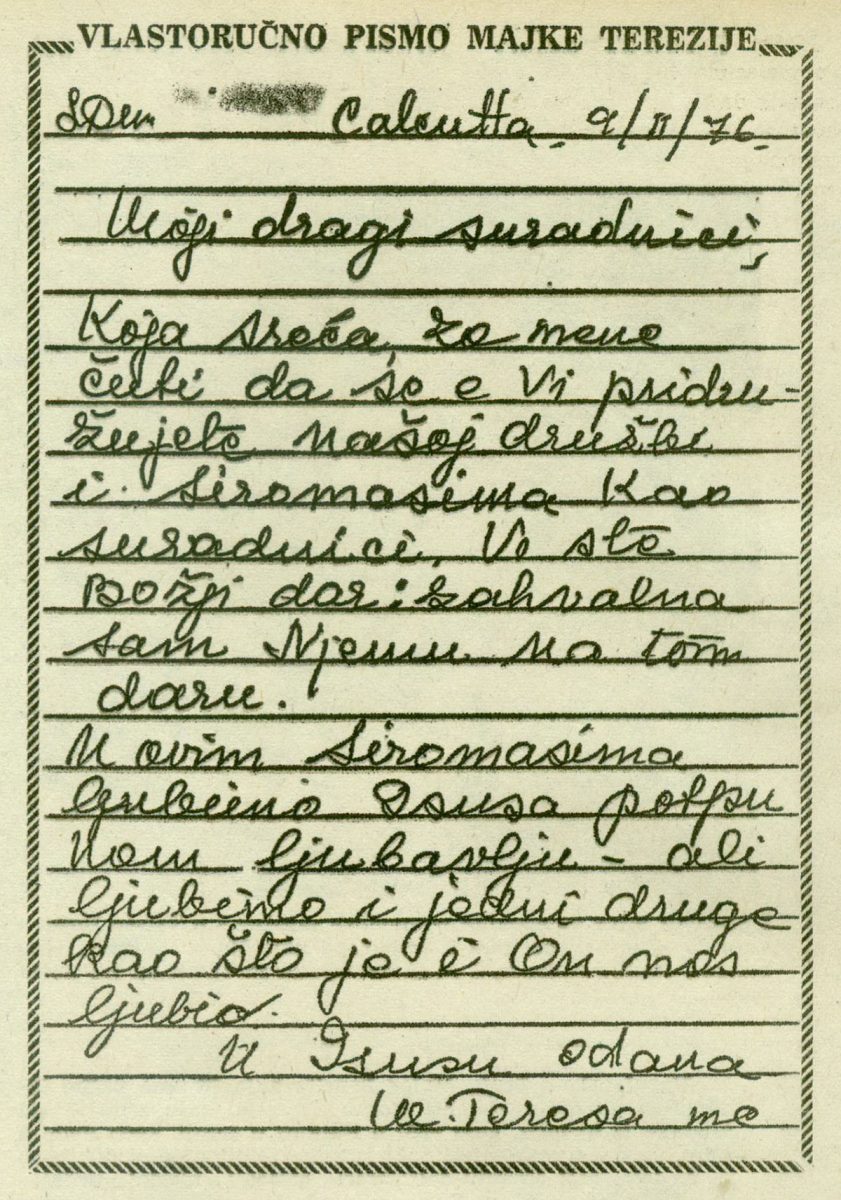 VLASTORUČNO PISMO MAJKE TEREZIJE
LDM Calcutta, 9/II/76.
Moji dragi suradnici,
Koja sreća, za mene
čuti da se e Vi pridru-
žujete našoj družbi
i siromasima kao
suradnici. Vi ste
Božji dar: zahvalna
sam Njemu na tom
daru.
U ovim siromasima
ljubimo Isusa potpu
nom ljubavlju - ali
ljubimo i jedni druge
kao što je i On nas
ljubio.
U Isusu odana
M. Teresa mc